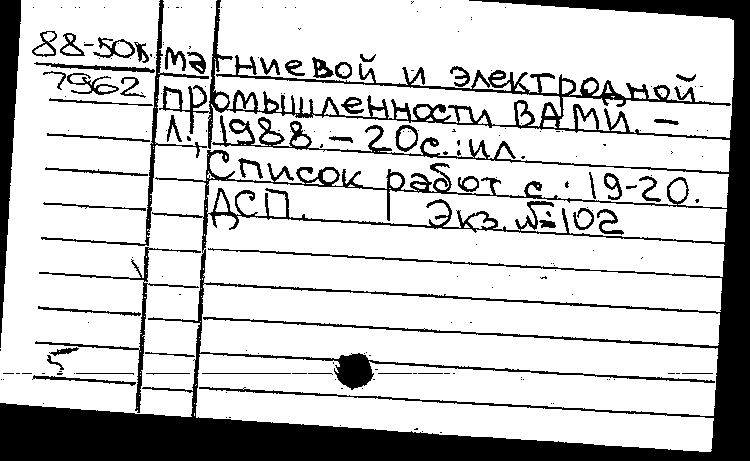 88-50к. магниевой и электродной
7962 промышленности ВАМИ. –
Л., 1988. – 20с.: ил.
Список работ с.: 19-20.
ДСП. Экз. №102
5